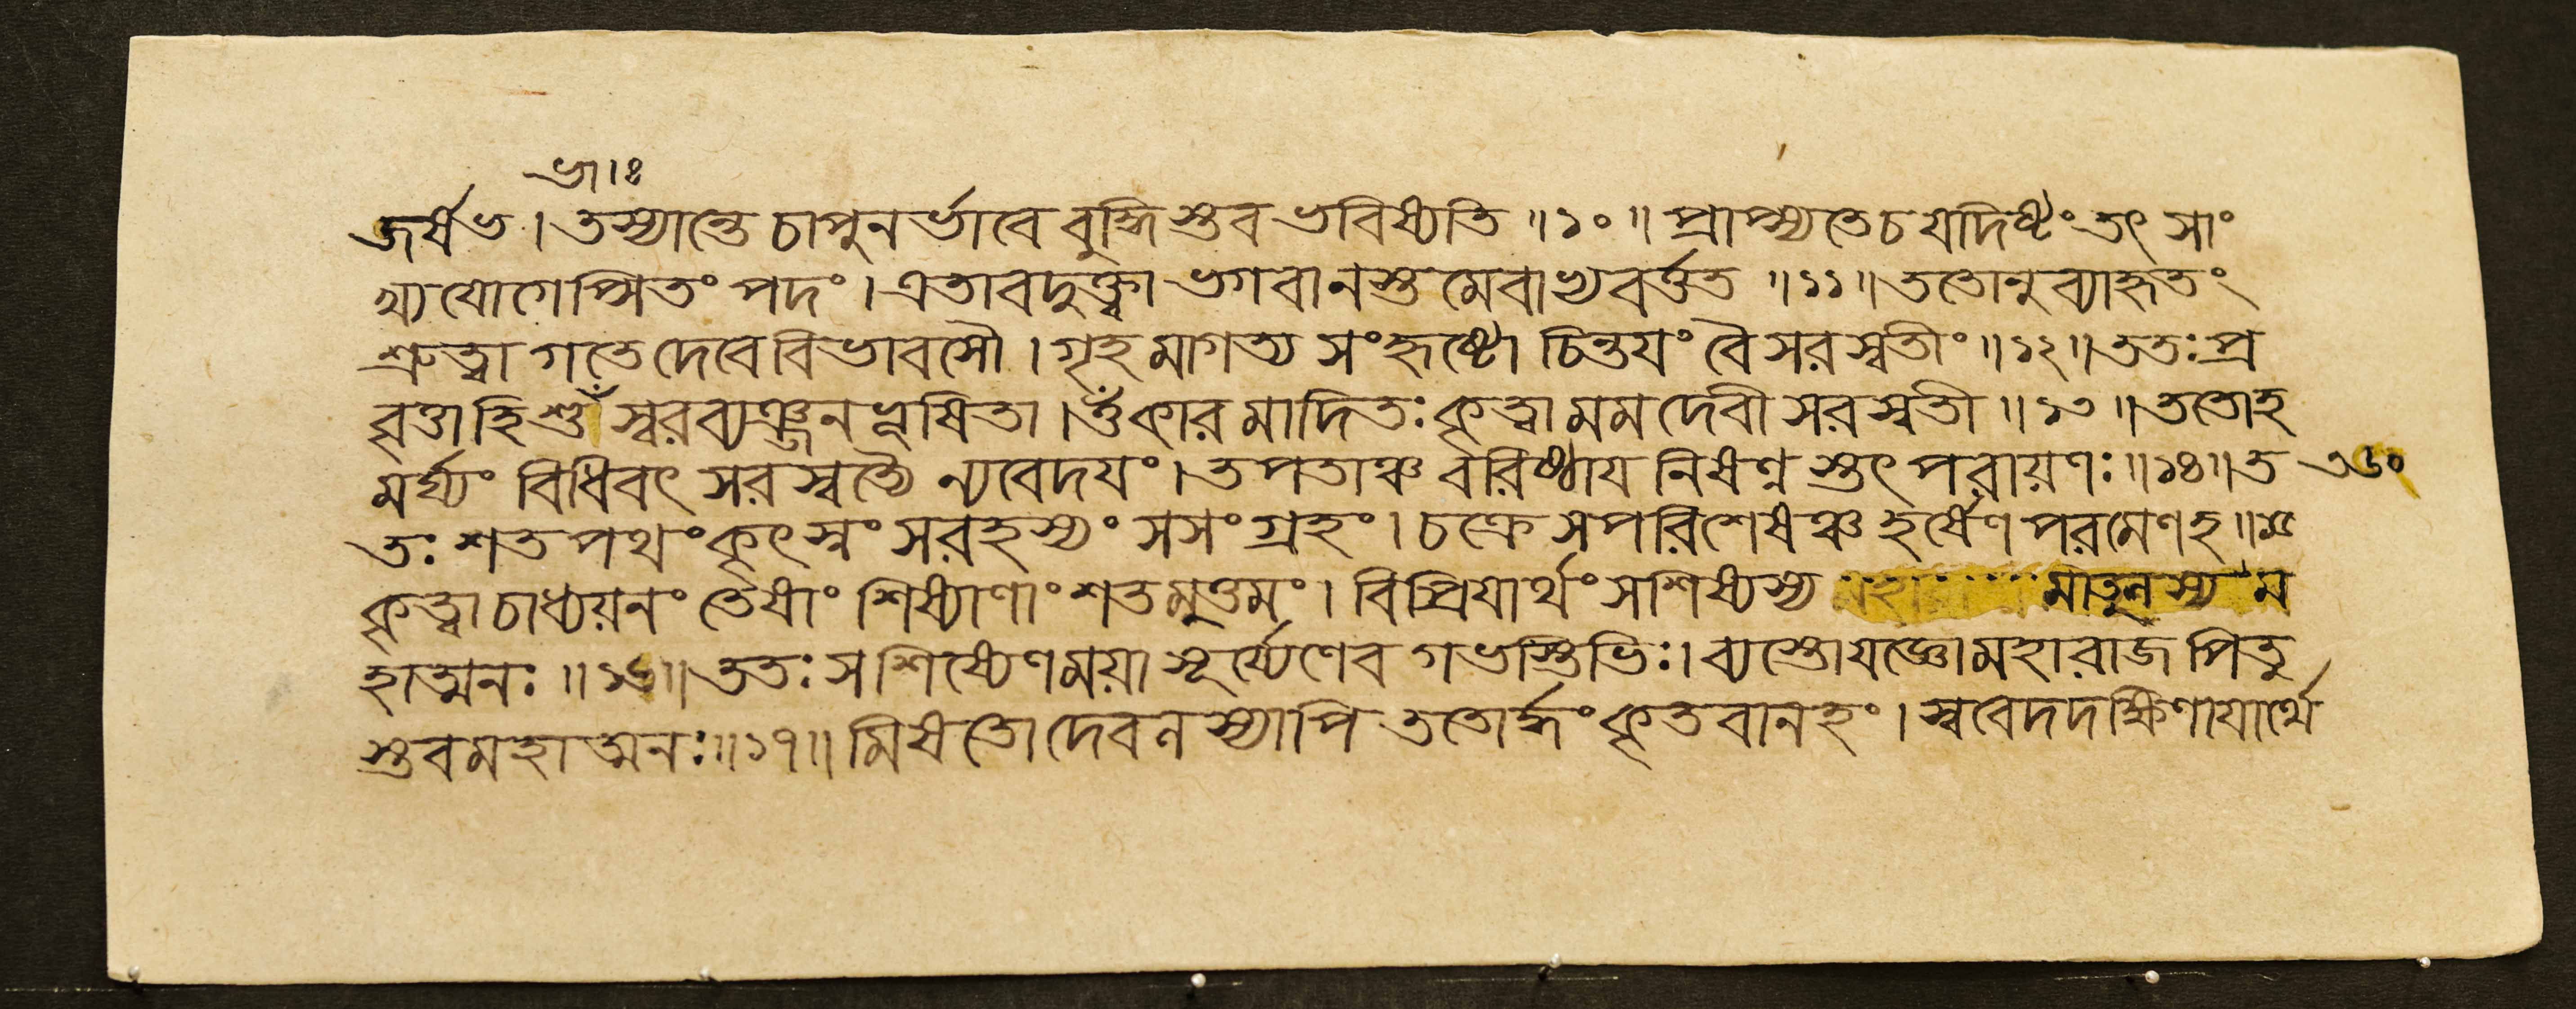 ভাঃ
জর্ষভ । তস্যান্তে চাপুনর্ভাবে বুদ্ধিস্তব ভবিষ্যতি ॥ ১০ ॥ প্রাপ্স্যতে চ যদিষ্টং তৎ সাং
খ্যযোগেপ্সিতং পদং । এতাবদুক্ত্বা ভগবানস্তমেবাভ্যবর্ত্তত ॥ ১১ ॥ ততোনুব্যাহৃতং
শ্রুত্বা গতে দেবে বিভাবসৌ । গৃহমাগত্য সংহৃষ্টো চিন্তযং বৈ সরস্বতীং ॥ ১২ ॥ ততঃ প্র
বৃত্তাহি স্বরব্যঞ্জনভূষিতা । ওঁকারমাদিতঃ কৃত্বা মম দেবী সরস্বতী ॥ ১৩ ॥ ততোহ
মর্ঘ্যং বিধিবৎ সরস্বত্যৈ ন্যবেদযং । তপতাঞ্চ বরিষ্ঠায নিষণ্ন স্তৎপরায়ণঃ ॥ ১৪ ॥ ত
তঃ শতপথং কৃৎস্নং সরহস্যং সসংগ্রহং । চক্রে সপরিশেষঞ্চ হর্ষেণ পরমেণ হ ॥ ১৫
কৃত্বা চাধ্যয়নং তেষাং শিষ্যাণাং শতমুত্তমং । বিপ্রিযার্থং সশিষ্যস্য মাতুলস্য ম
হাত্মনঃ ॥ ১৬ ॥ ততঃ সশিষ্যেণ ময়া সূর্য্যেণেব গভস্তিভিঃ । ব্যস্তোযজ্ঞো মহারাজ পিতু
স্তব মহাত্মনঃ ॥ ১৭ ॥ মিষতো দেবলস্যাপি ততোর্দ্ধং কৃতবানহং । স্ববেদদক্ষিণাযার্থে